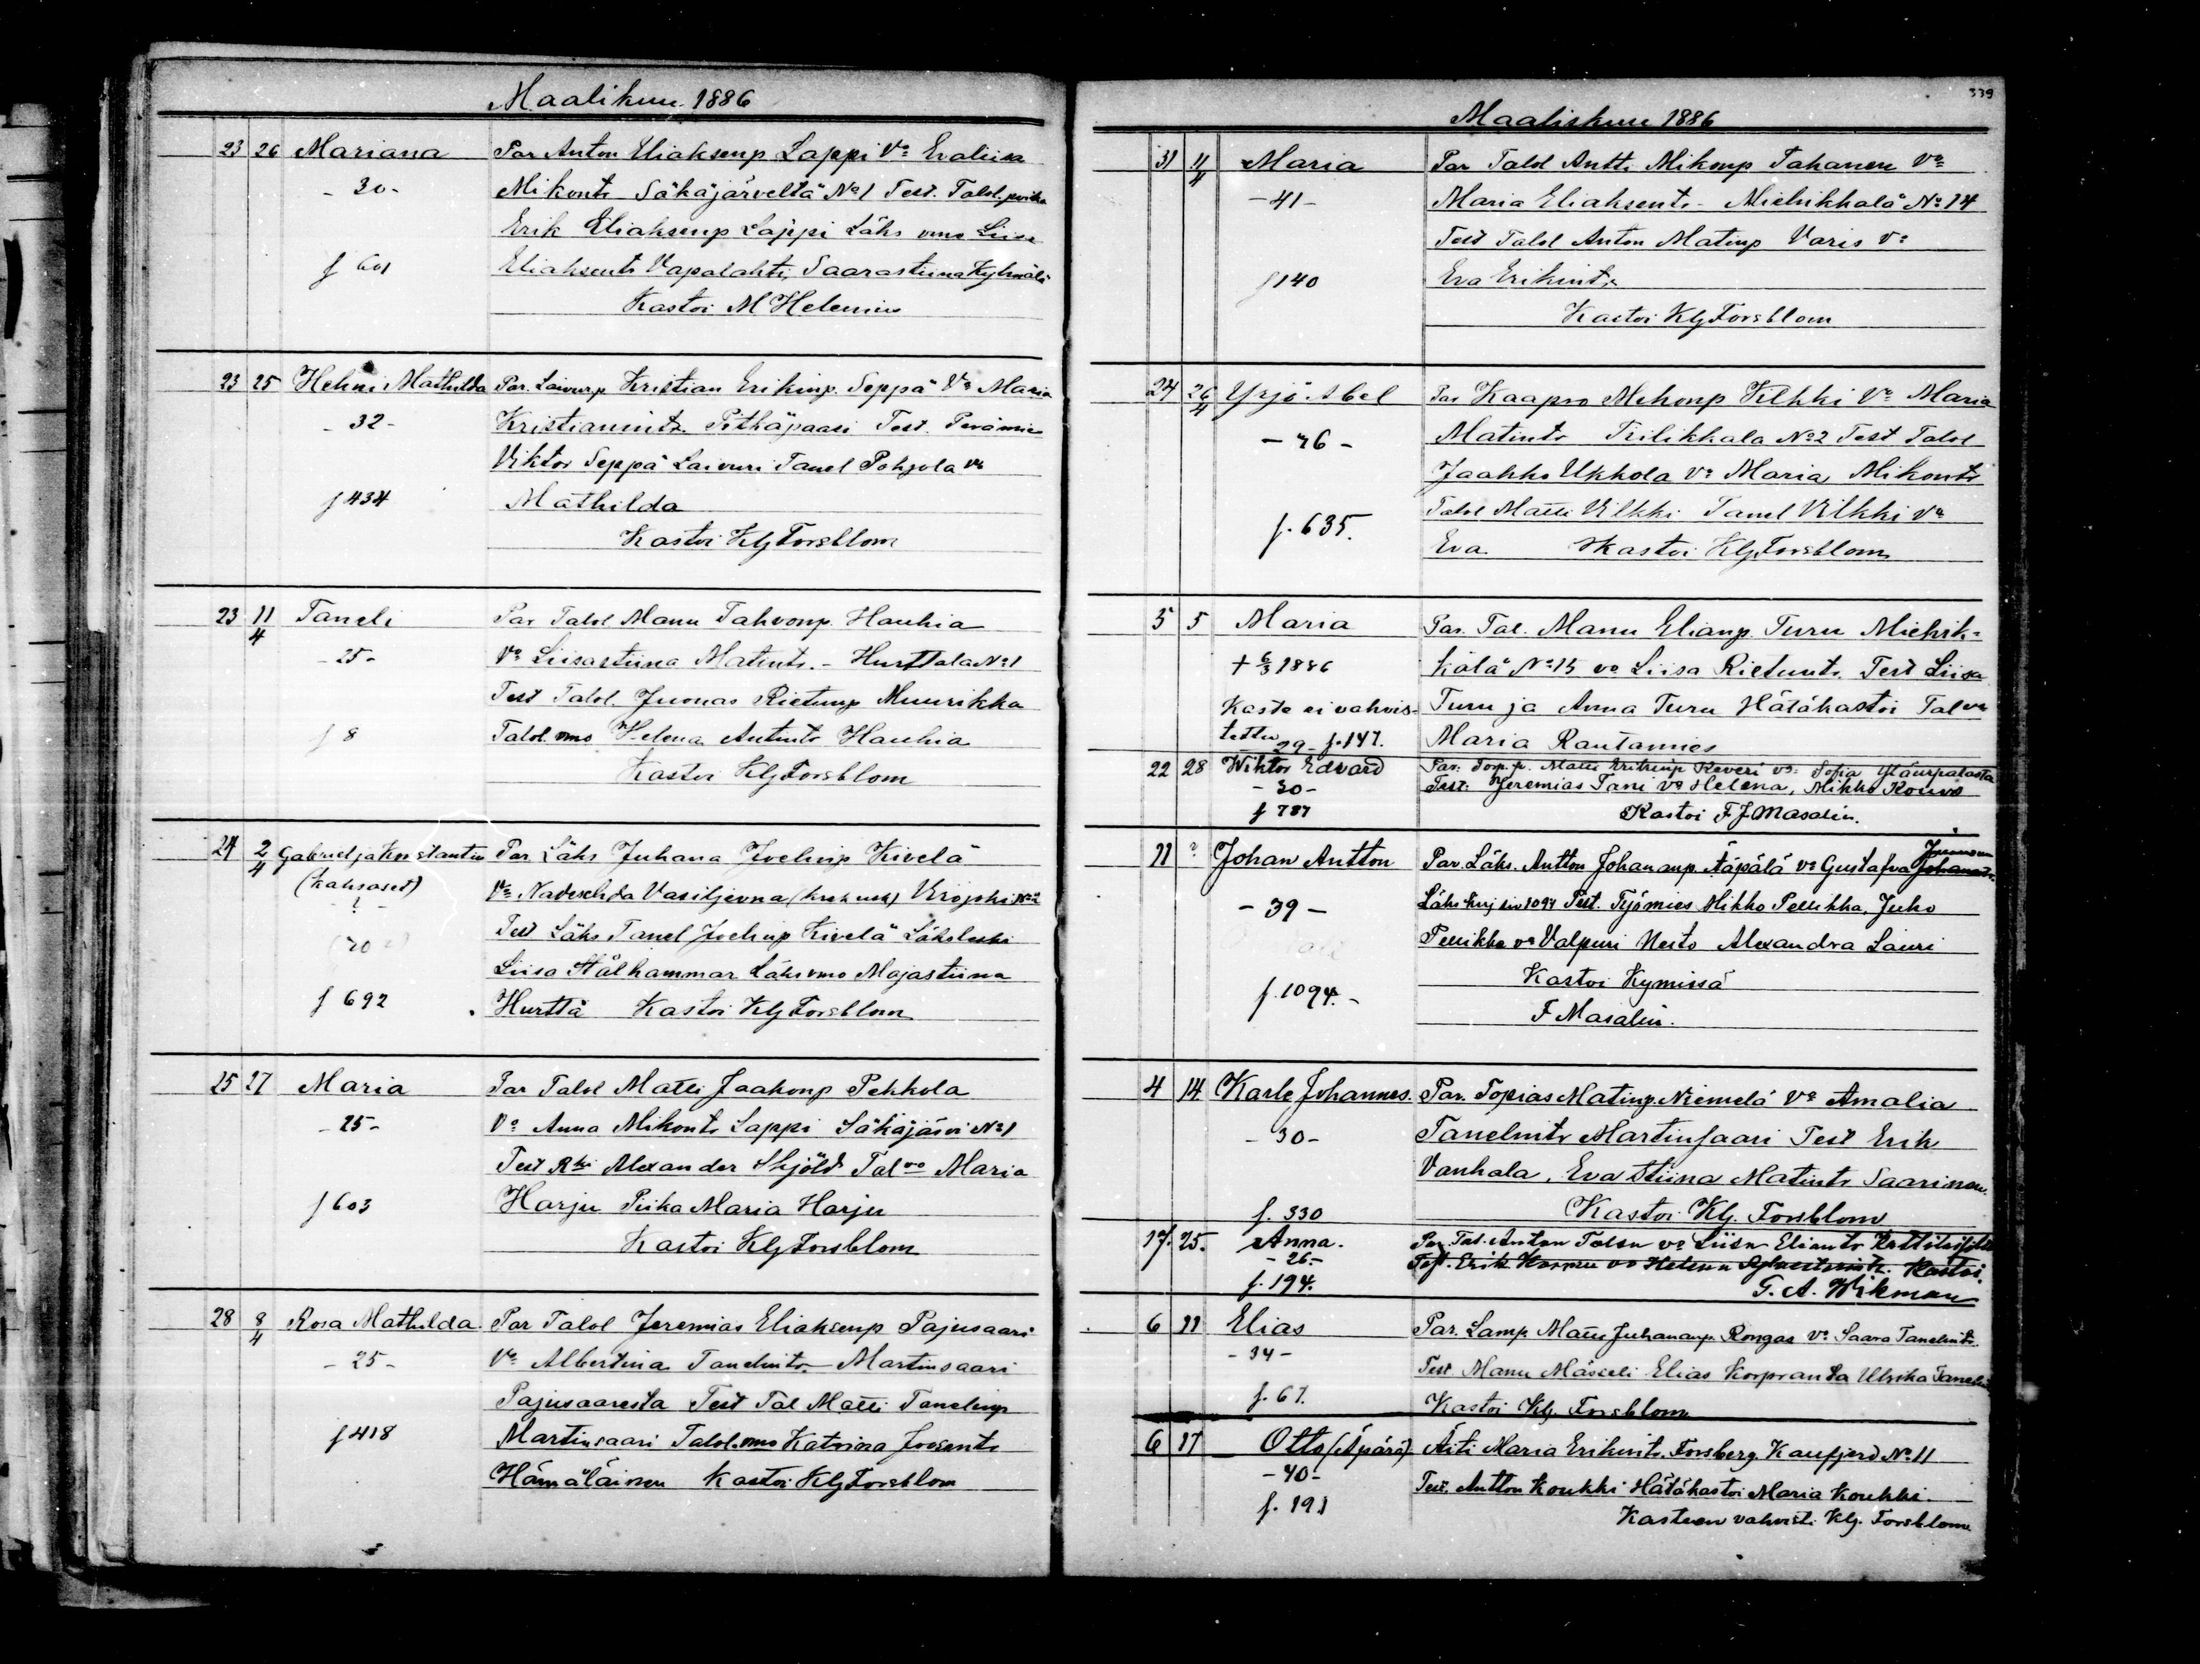 Maalikuu 1886
23 26 Mariana Par Anton Eliaksenp Lappi Vo Evaliisa
- 30 - Mikontr Säkäjärveltä No 1 Test. Talol. poika
Erik Eliaksenp Lappi Läks vmo Liisa
f 601 Eliaksentr Vapalahti, Saarastiina Kylmälä
Kastoi M Helenius
23 25 Helmi Mathilda Par. Laivurp Kristian Erikinp. Seppä Vo Maria
- 32 - Kristianintr. Pitkäpaasi Test. Perämies
Viktor Seppä Laivuri Tanel Pohjola vo
f 434 Mathilda
Kastoi Klj Forsblom
23 11/4 Taneli Par Talol Manu Tahvonp. Hauhia
- 25 - Vo Liisastiina Matintr. - Hurttala No 1
Test Talol. Juonas Rietunp Muurikka
f 8 Talol. vmo Helena Antintr Hauhia
Kastoi Klj Forsblom
24 2/4 Gabriel ja Konstantin Par Läks Juhana Joelinp Kivelä
(kaksoset) Vo Nadeschda Vasiljevna (krek usk) Virojoki No 2
- ? - Test Läks Tanel Joelinp Kivelä Läksleski
Liisa Stålhammar Läks vmo Majastiina
f 692 Hurtta Kastoi Klj Forsblom
25 27 Maria Par Talol Matti Jaakonp Pekkola
- 25 - Vo Anna Mikontr Lappi Säkäjärvi No 1
Test Rki Alexander Skjöld Tal vo Maria
f 603 Harju Piika Maria Harju
Kastoi Klj Forsblom
28 8/4 Rosa Mathilda Par Talol Jeremias Eliaksenp Pajusaari
- 25 - Vo Albertina Tanelintr - Martinsaari
Pajusaaresta Test Tal Matti Tanelinp
f 418 Martinsaari Talol. vmo Katriina Joosentr
Hämäläinen Kastoi Klj Forsblom
339
Maaliskuu 1886
31 11/4 Maria Par Talol Antti Mikonp Tahanen Vo
- 41 - Maria Eliaksentr - Miehikkälä No 14
Test Talol Anton Matinp Varis Vo
f 140 Eva Erikintr
Kastoi Klj Forsblom
24 26/4 Yrjö Abel Par Kaapro Mikonp Kilkki Vo Maria
- 46 - Matintr Tiilikkala No 2 Test Talol
Jaakko Ukkola Vo Maria Mikontr
f. 635. Talol Matti Vilkki Tanel Vilkki Vo
Eva Kastoi Klj. Forsblom
5 5 Maria Par. Tal. Manu Elianp. Turu Miehik-
+ 6/3 1886 kälä No 15 vo Liisa Rietuntr. Test Liisa
Kaste ei vahvis- Turu ja Anna Turu Hätäkastoi Tal vo
tettu 29 - f. 147. Maria Rautamies
22 28 Wiktor Edvard Par: Torp. p. Matti Erikinp Keveri vo: Sofia Yläurpalasta
- 30 - Test: Jeremias Tani Vo Helena, Mikko Kouvo
f 787 Kastoi F J Masalin.
11 ? Johan Antton Par. Läks. Antton Johananp. Ääpälä vo Gustafva Johanantr.
- 39 - Läks kirj siv 1094 Test. Työmies Mikko Pesukka, Juho
Pesukka vo Valpuri Neito Alexandra Lauri
Kastoi Kymissä
f. 1094. - F Masalin.
4 14 Karle Johannes. Par. Topias Matinp. Niemelä Vo Amalia
- 30 - Tanelintr Martinsaari Test Erik
Vanhala, Eva Stiina Matintr Saarinen.
f. 330 Kastoi Klj. Forsblom
17. 25. Anna. Par. Tal. Anton Tolsa vo Liisa Eliantr
- 26. - Test. Erik vo Helena Kastoi.
f. 194. G. A. Wikman
6 11 Elias Par. Lamp. Matti Juhananp. Rongas Vo Saara Tanelintr.
- 34 - Test Manu Mässeli Elias Korpranta Ulrika
f. 67. Kastoi Klj. Forsblom
6 17 Otto (Äpärä) Äiti Maria Erikintr. Forsberg. Kaufjerd No 11
- 40 - Test. Antton Koukki Hätäkastoi Maria Koukki.
f. 191 Kasteen vahvisti Klj. Forsblom